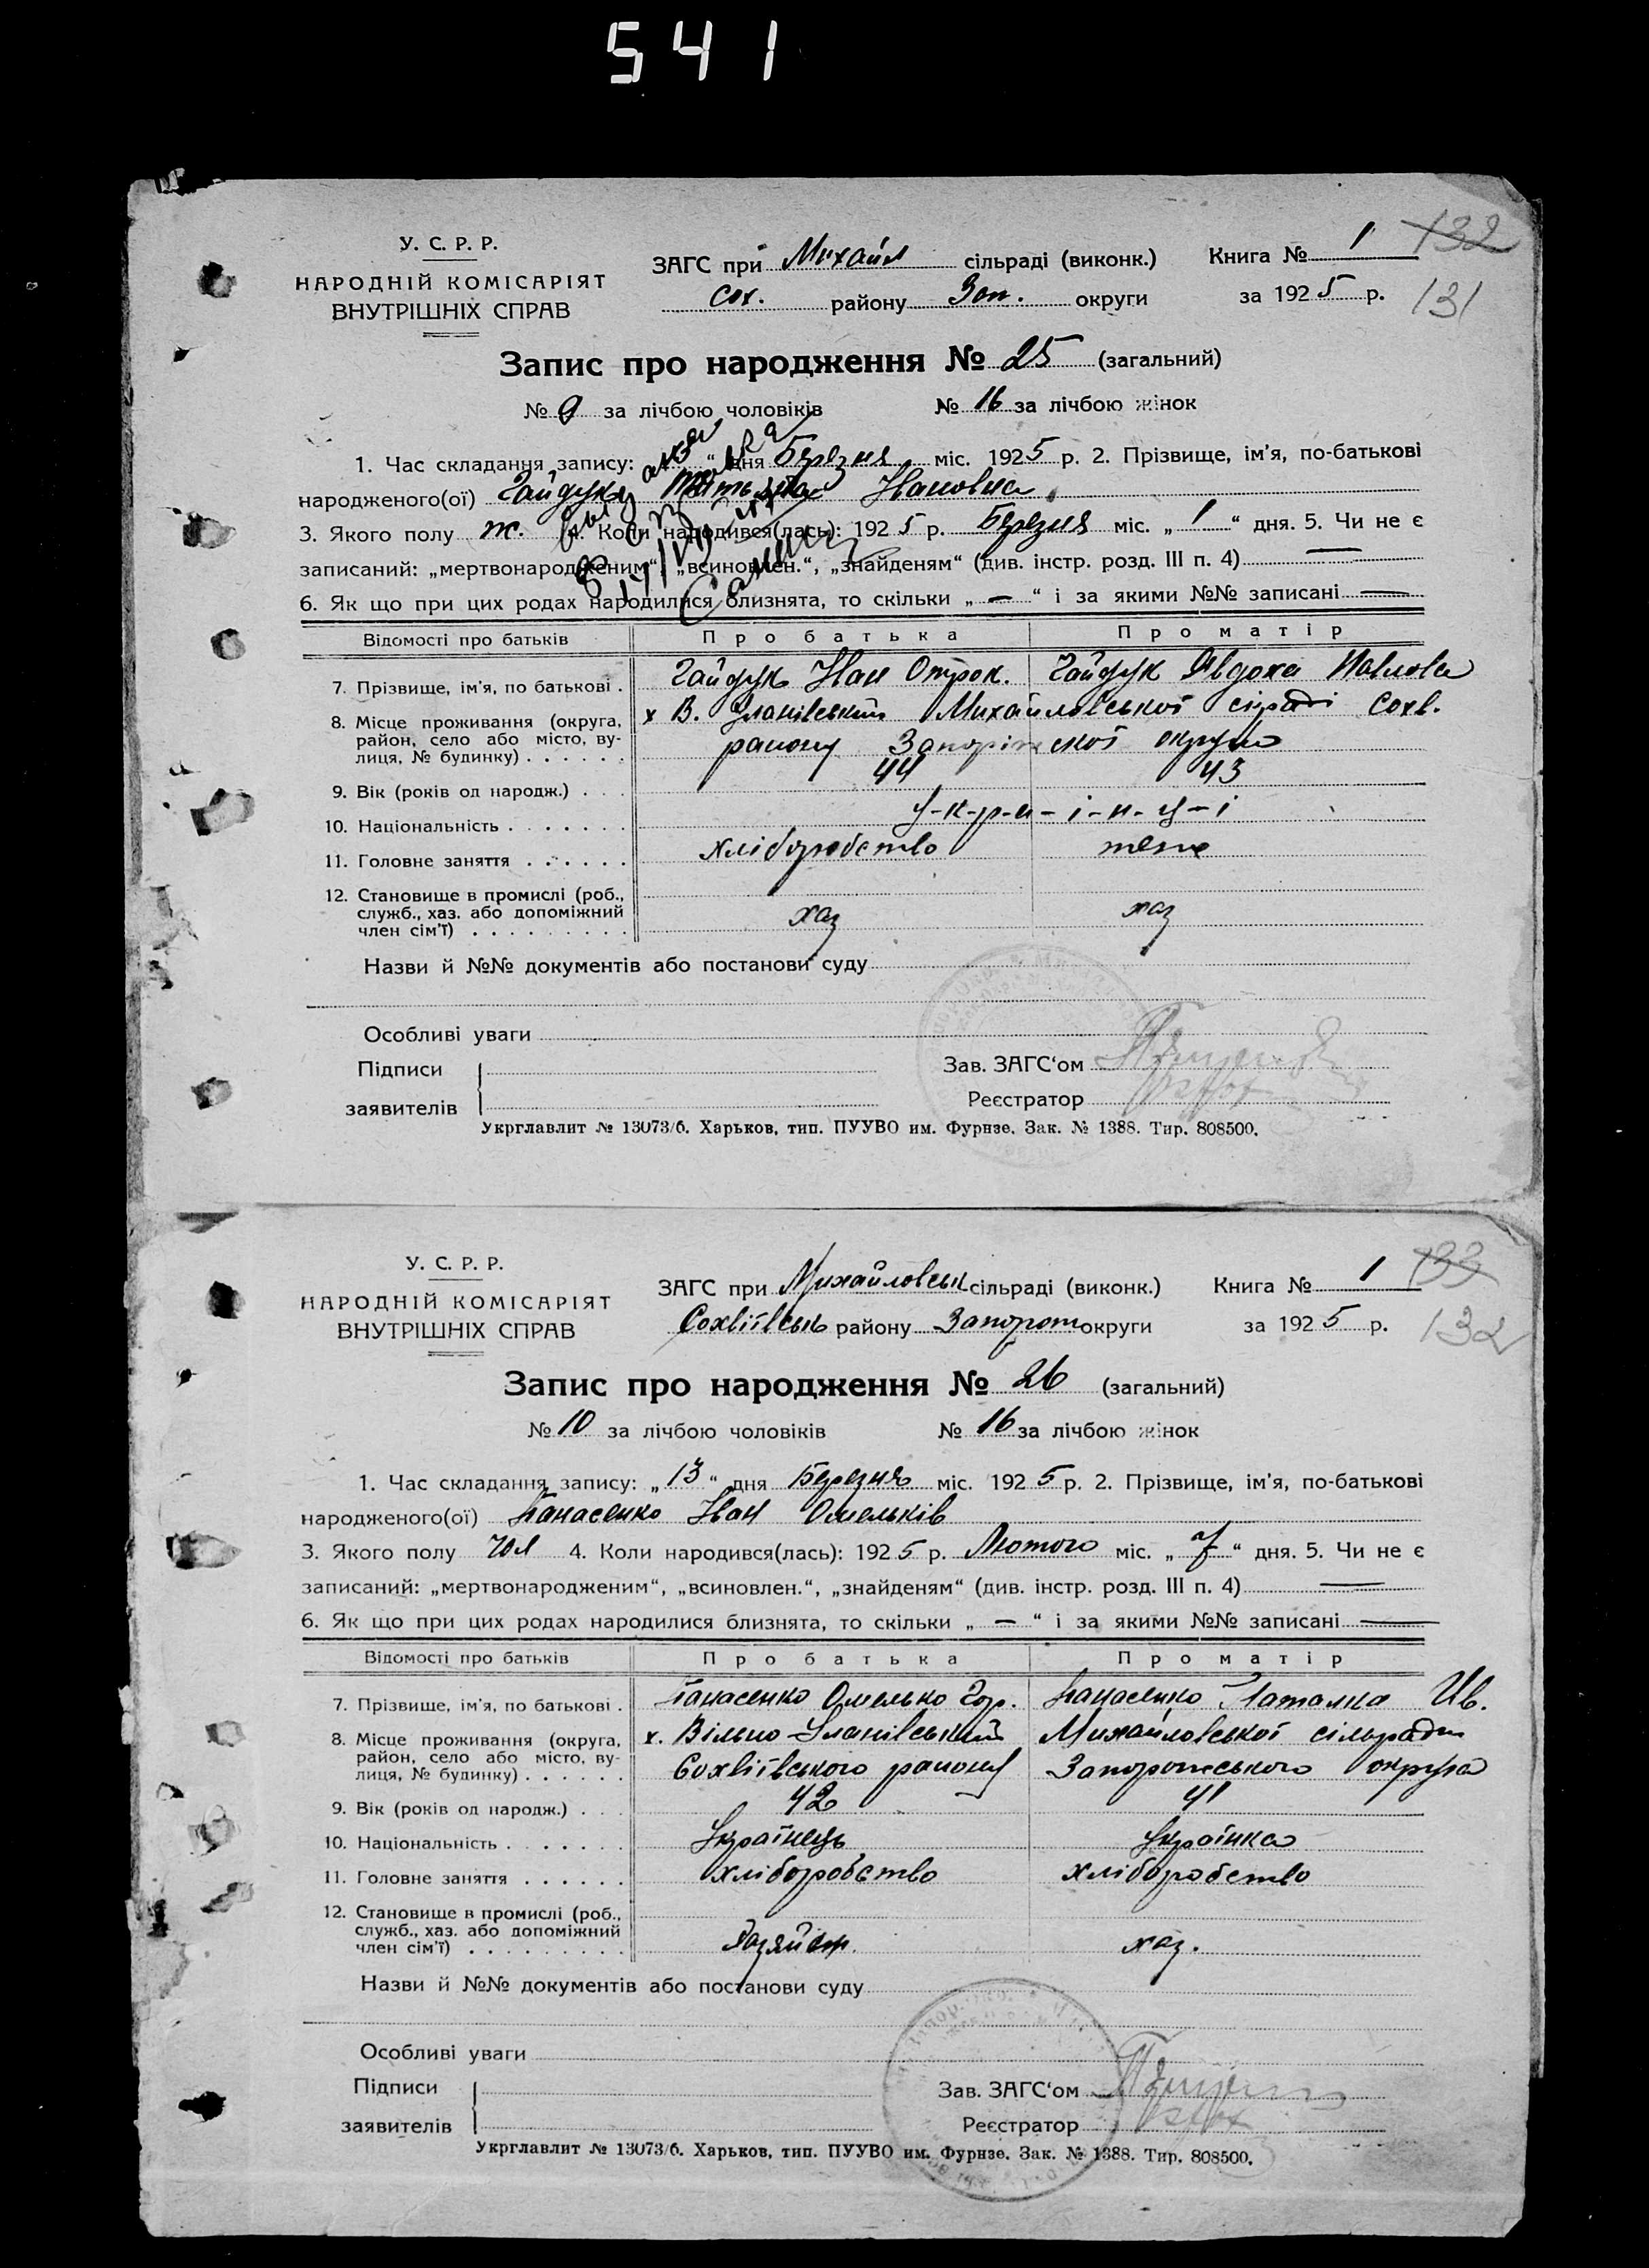 541
У. С. Р. Р.
НАРОДНІЙ КОМІСАРІЯТ
ВНУТРІШНІХ СПРАВ
ЗАГС при Михайл сільраді (виконк.)
Сох. району Зап. округи
Книга № 1
за 1925 р.
132
131
Запис про народження № 25 (загальний)
№ 9 за лічбою чоловіків № 16 за лічбою жінок
1. Час складання запису: “ дня Березня міс. 1925 р. 2. Прізвище, ім'я, по-батькові
народженого(ої) Гайдук Ивановна
3. Якого полу ж. 4. Коли народився(лась): 1925 р. Березня міс. „ 1 “ дня. 5. Чи не є
записаний: „мертвонародженим“, „всиновлен.“, „знайденям“ (див. інстр. розд. III п. 4) —
6. Як що при цих родах народилися близнята, то скільки „ — “ і за якими №№ записані —
Відомості про батьків Про батька Про матір
7. Прізвище, ім'я, по батькові . Гайдук Иван Гайдук Явдоха Павлова
8. Місце проживання (округа, район, село або місто, вулиця, № будинку) . . . . . . х В. Уланівський Михайловської сілраді Сохв.
району Запоріжської округи
9. Вік (років од народж.) . . . 44 43
10. Національність . . . . . . . У-к-р-а-ї-н-ц-і
11. Головне заняття . . . . . . хліборобство теж
12. Становище в промислі (роб., служб., хаз. або допоміжний член сім'ї) . . . . . . . . . хаз хаз
Назви й №№ документів або постанови суду
Особливі уваги
Підписи
заявителів
Зав. ЗАГС‘ом
Реєстратор
Укрглавлит № 13073/б. Харьков, тип. ПУУВО им. Фрунзе. Зак. № 1388. Тир. 808500.
У. С. Р. Р.
НАРОДНІЙ КОМІСАРІЯТ
ВНУТРІШНІХ СПРАВ
ЗАГС при Михайловськ сільраді (виконк.)
Сохвіївськ району Запорож округи
Книга № 1
за 1925 р.
133
132
Запис про народження № 26 (загальний)
№ 10 за лічбою чоловіків № 16 за лічбою жінок
1. Час складання запису: „ 13 “ дня Березня міс. 1925 р. 2. Прізвище, ім'я, по-батькові
народженого(ої) Панасенко Иван Омельків
3. Якого полу чол 4. Коли народився(лась): 1925 р. Лютого міс. „ 7 “ дня. 5. Чи не є
записаний: „мертвонародженим“, „всиновлен.“, „знайденям“ (див. інстр. розд. III п. 4) —
6. Як що при цих родах народилися близнята, то скільки „ — “ і за якими №№ записані —
Відомості про батьків Про батька Про матір
7. Прізвище, ім'я, по батькові . Панасенко Омелько Гор. Панасенко Наталка Ив.
8. Місце проживання (округа, район, село або місто, вулиця, № будинку) . . . . . . х. Вільно-Уланівський Михайловської сільради
Сохвіївського району Запорожського округа
9. Вік (років од народж.) . . . 42 41
10. Національність . . . . . . . Українець українка
11. Головне заняття . . . . . . хліборобство хліборобство
12. Становище в промислі (роб., служб., хаз. або допоміжний член сім'ї) . . . . . . . . . хаз.
Назви й №№ документів або постанови суду
Особливі уваги
Підписи
заявителів
Зав. ЗАГС‘ом
Реєстратор
Укрглавлит № 13073/б. Харьков, тип. ПУУВО им. Фрунзе. Зак. № 1388. Тир. 808500.